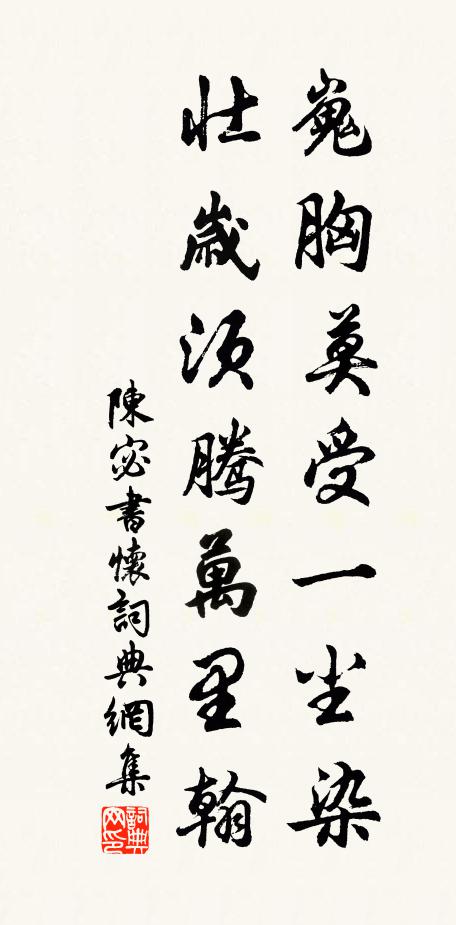 嵬胸莫受一尘染
壮歲須騰萬里翰
陳宓書懷詞典網集
詞典网印